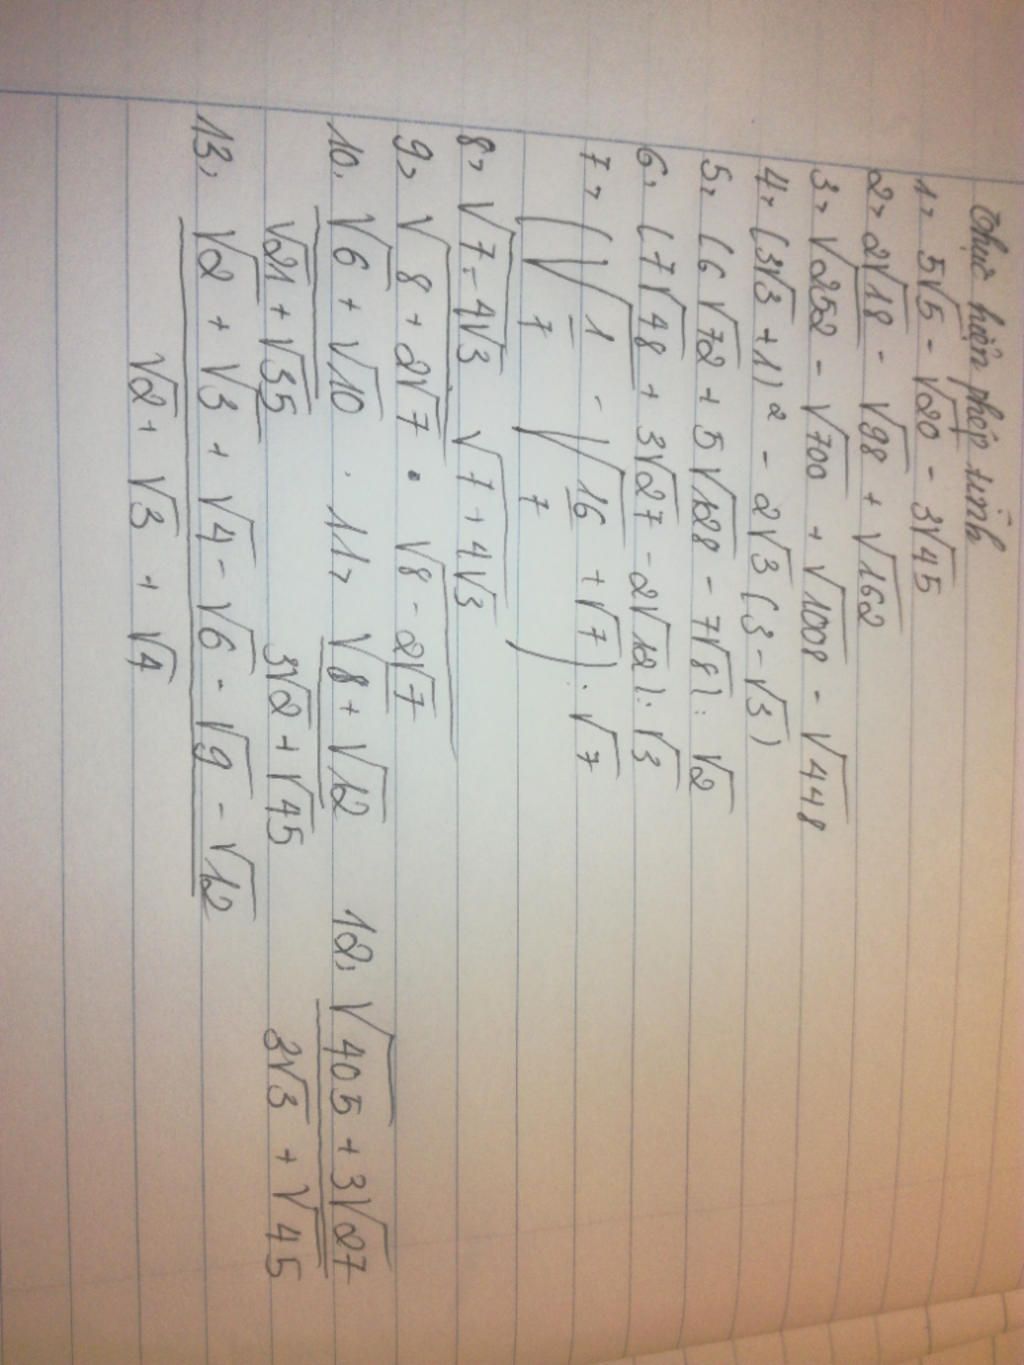 Thực hiện phép tính
1, 5√5 - √20 - 3√45
2, 2√18 - √98 + √162
3, √252 - √700 + √1008 - √448
4, (3√3 + 1)² - 2√3 (3 - √3)
5, (6√72 + 5√128 - 7√8) : √2
6, (7√48 + 3√27 - 2√12) : √3
7, (√1/7 - √16/7 + √7) : √7
8, √7 - 4√3 √7 + 4√3
9, √8 + 2√7 . √8 - 2√7
10, √6 + √10 . 11, √8 + √12 12, √405 + 3√27
√21 + √35 3√2 + √45 3√3 + √45
13, √2 + √3 + √4 - √6 - √9 - √12
√2 + √3 + √4